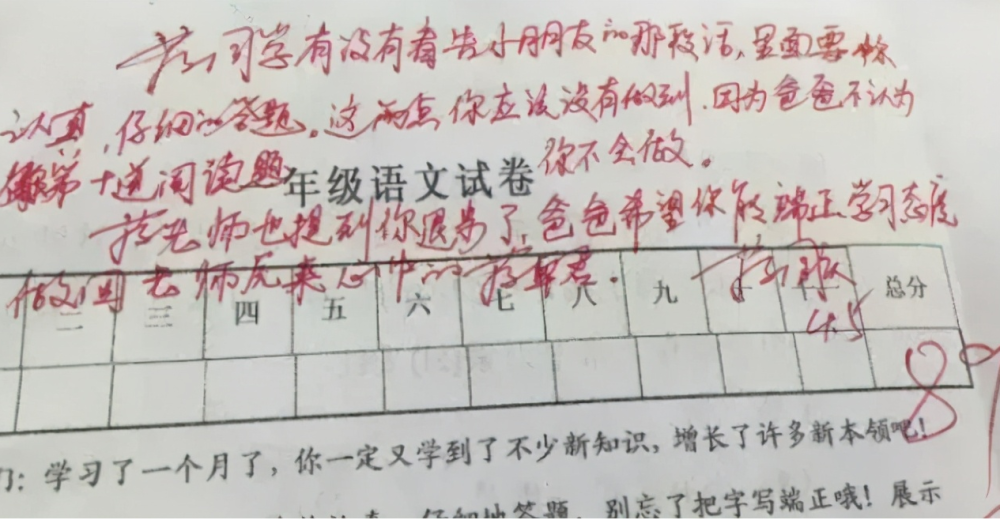 蒋同学有没有看告小朋友的那段话,里面要你
认真,仔细的答题。这两点你应该没有做到.因为爸爸不认为
第十道阅读题
你不会做。
年级语文试卷
蒋老师也提到你退步了爸爸希望你能端正学习态度
做回老师原来心中的蒋
二 三 四 五 六 七 八 九 十 十一 总分
4.5
8
们:学习了一个月了,你一定又学到了不少新知识,增长了许多新本领吧!
仔细地答题,别忘了把字写端正哦!展示